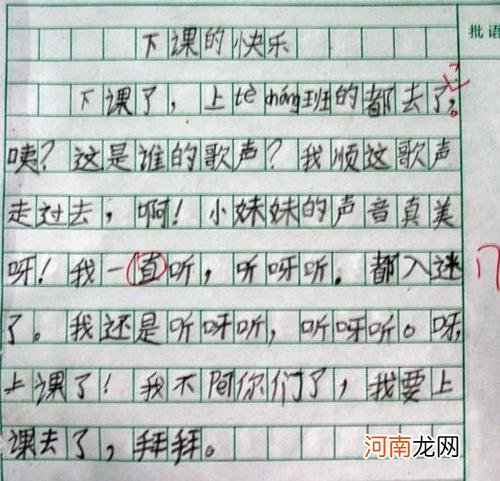 下课的快乐
批语
下课了，上tè cháng班的都去了，
咦？这是谁的歌声？我顺这歌声
走过去，啊！小妹妹的声音真美
呀！我一直听，听呀听，都入迷
了。我还是听呀听，听呀听。呀，
上课了！我不陪你们了，我要上
课去了，拜拜。
河南龙网